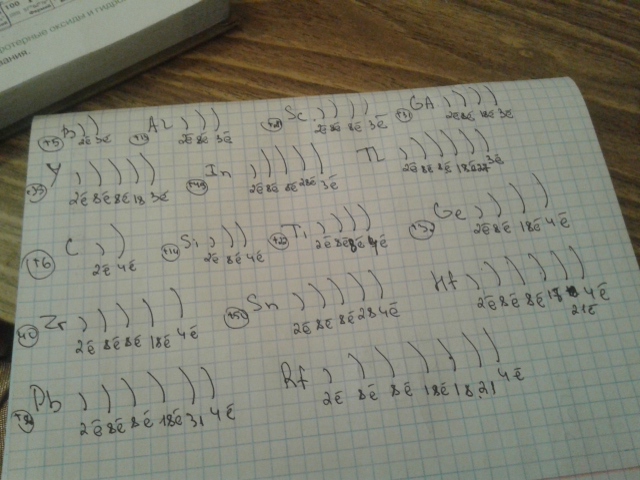 100
ротерные оксиды и гидро
вания.
+5 B 2ē 3ē +13 AL 2ē 8ē 3ē +21 Sc 2ē 8ē 8ē 3ē +31 GA 2ē 8ē 18ē 3ē
+39 Y 2ē 8ē 8ē 18 3ē +49 In 2ē 8ē 8ē 28ē 3ē TL 2ē 8ē 8ē 18ē 27 3ē
+6 C 2ē 4ē +14 Si 2ē 8ē 4ē +22 Ti 2ē 8ē 8ē 4ē +32 Ge 2ē 8ē 18ē 4ē
40 Zr 2ē 8ē 8ē 18ē 4ē +50 Sn 2ē 8ē 8ē 28 4ē Hf 2ē 8ē 8ē 18 4ē
21ē
+82 Pb 2ē 8ē 8ē 18ē 31 4ē Rf 2ē 8ē 8ē 18ē 18 21 4ē